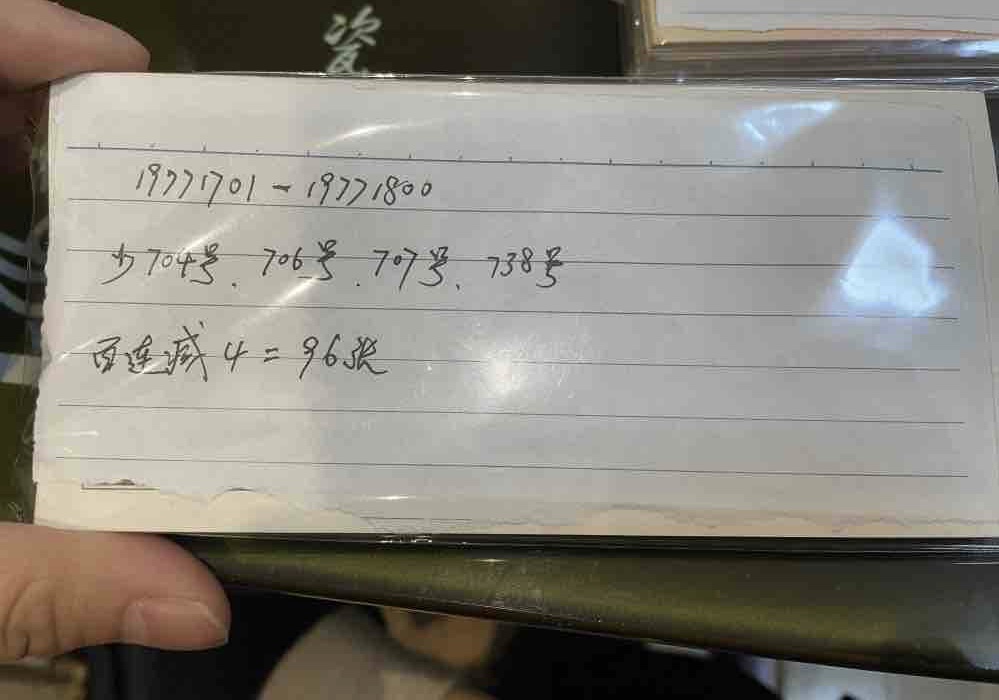 瓷
19771701-19771800
少704号、706号、707号、738号
百连减4=96张